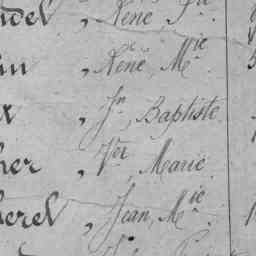 ndel , René, Pre
in , René, Mie
r , Jn Baptiste
her , Vor Marie
herel , Jean, Mie